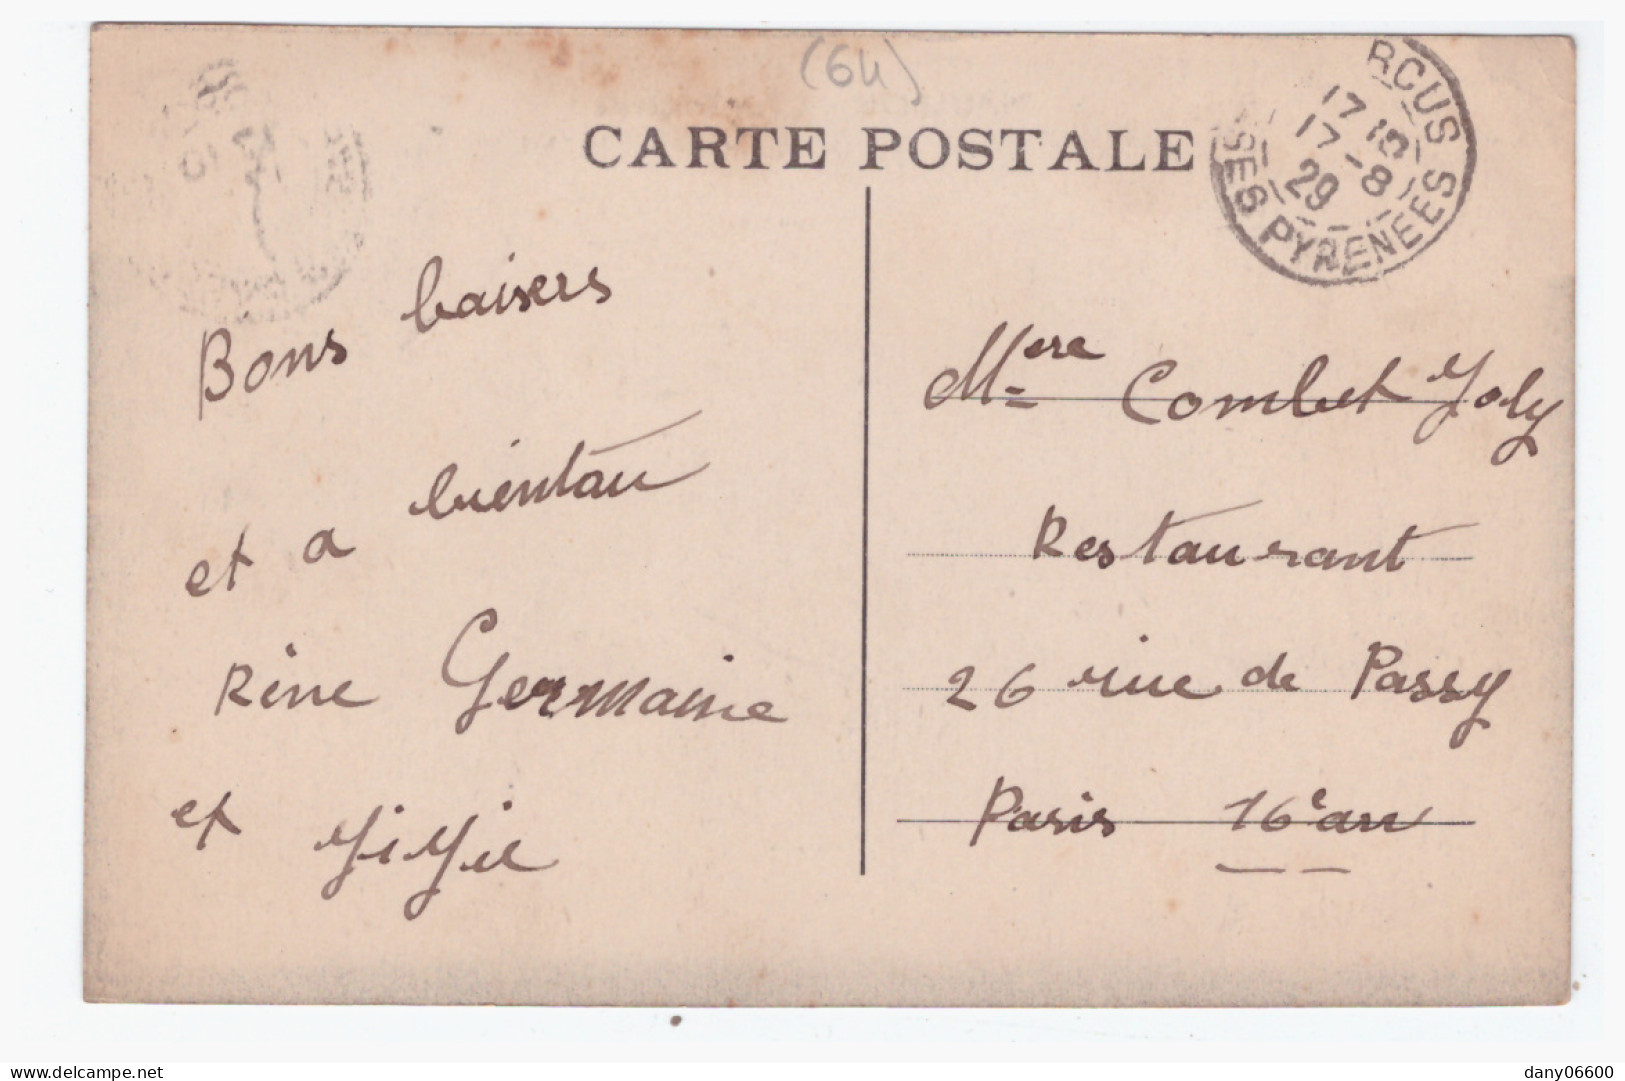 (64)
CARTE POSTALE
RCUS
17 15
17 -8
29
SES PYRENEES
Bons baisers
et a bientau
Rène Germaine
et
Mère Combet Joly
Restaurant
26 rue de Passy
Paris 16e arr
delcampe.net
dany06600